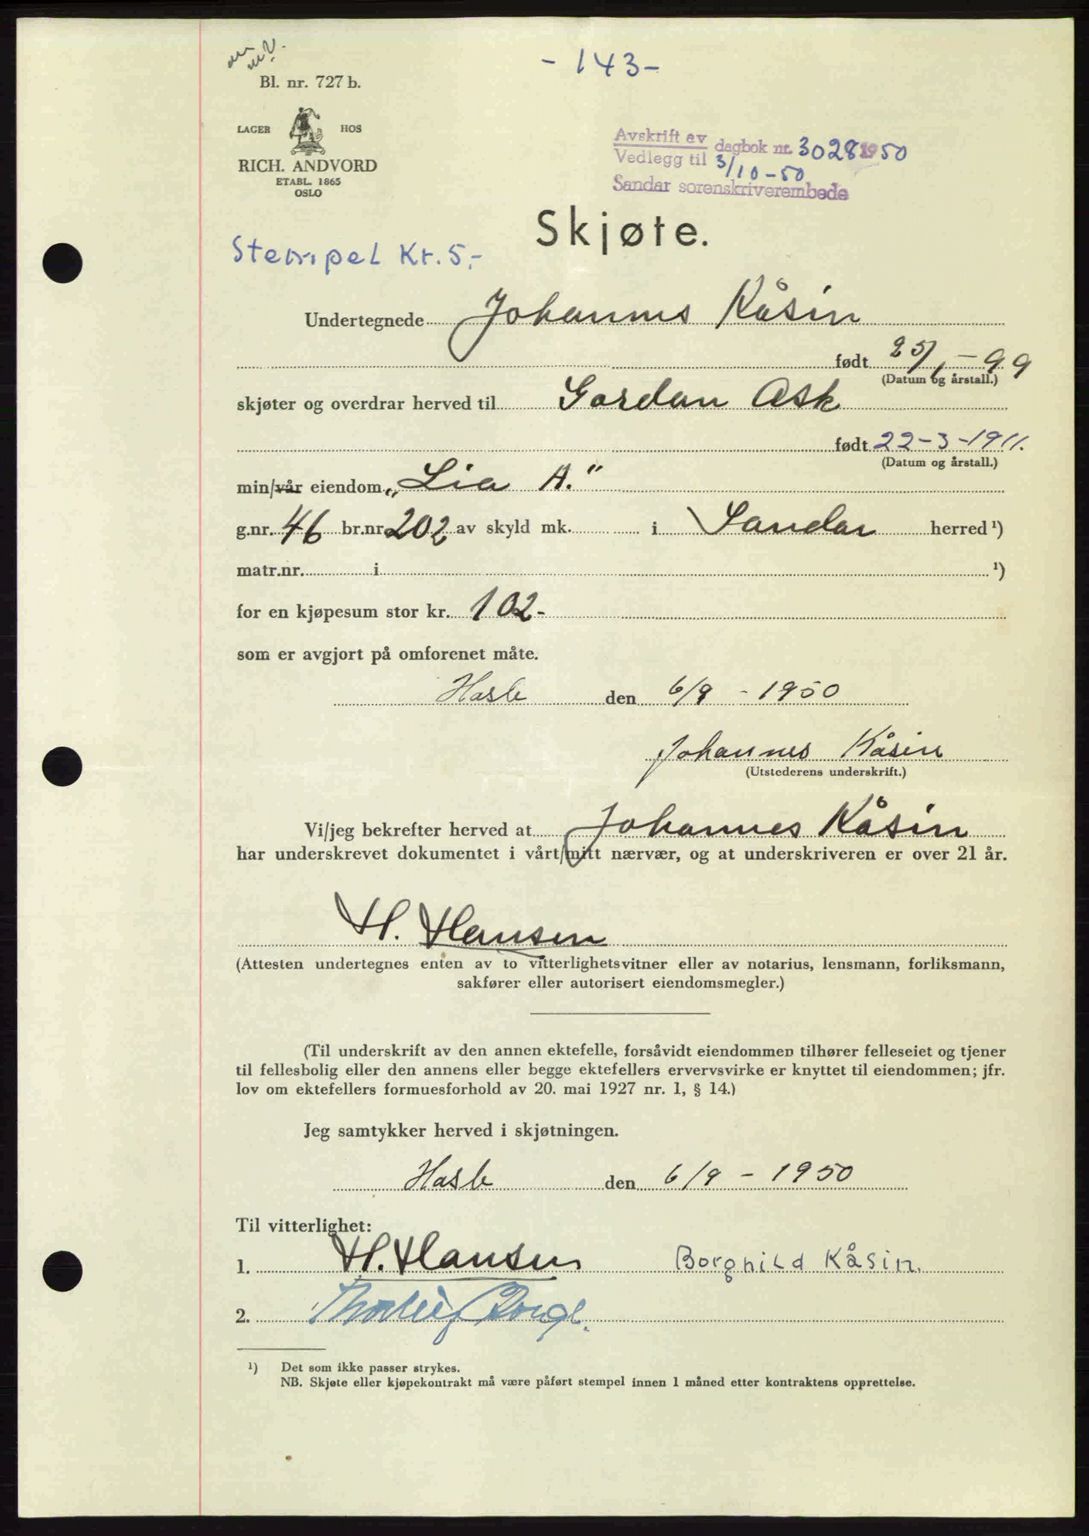 - 143 -
Bl. nr. 727 b.
LAGER HOS
RICH. ANDVORD
ETABL. 1865
OSLO
Avskrift av
Vedlegg til dagbok nr. 3028 1950
3/10-50
Sandar sorenskriverembede
Skjøte.
Stempel Kr. 5,-
Undertegnede Johannes Kåsin
født 25/1-99
(Datum og årstall.)
skjøter og overdrar herved til Gordan Ask
født 22-3-1911.
(Datum og årstall.)
min/vår eiendom „Lia A."
g.nr. 46 br.nr. 202 av skyld mk. i Sandar herred ¹)
matr.nr. i ¹)
for en kjøpesum stor kr. 102-
som er avgjort på omforenet måte.
Hasle den 6/9 - 1950
Johannes Kåsin
(Utstederens underskrift.)
Vi/jeg bekrefter herved at Johannes Kåsin
har underskrevet dokumentet i vårt/mitt nærvær, og at underskriveren er over 21 år.
H. Hansen
(Attesten undertegnes enten av to vitterlighetsvitner eller av notarius, lensmann, forliksmann,
sakfører eller autorisert eiendomsmegler.)
(Til underskrift av den annen ektefelle, forsåvidt eiendommen tilhører felleseiet og tjener
til fellesbolig eller den annens eller begge ektefellers ervervsvirke er knyttet til eiendommen; jfr.
lov om ektefellers formuesforhold av 20. mai 1927 nr. 1, § 14.)
Jeg samtykker herved i skjøtningen.
Hasle den 6/9 - 1950
Til vitterlighet:
1. H. Hansen Borghild Kåsin.
2.
¹) Det som ikke passer strykes.
NB. Skjøte eller kjøpekontrakt må være påført stempel innen 1 måned etter kontraktens opprettelse.